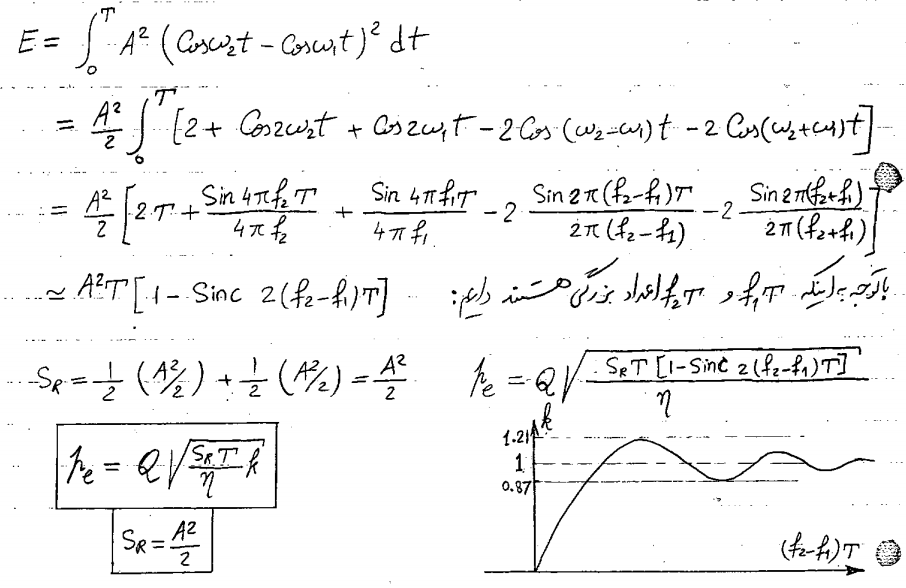 E = ∫₀ᵀ A² (Cosω₂t - Cosω₁t)² dt
= A²/2 ∫₀ᵀ [2 + Cos2ω₂t + Cos2ω₁t - 2Cos(ω₂-ω₁)t - 2Cos(ω₂+ω₁)t]
= A²/2 [2T + Sin4πf₂T/4πf₂ + Sin4πf₁T/4πf₁ - 2 Sin2π(f₂-f₁)T/2π(f₂-f₁) - 2 Sin2π(f₂+f₁)T/2π(f₂+f₁)]
≃ A²T [1 - Sinc 2(f₂-f₁)T] باتوجه به اینکه f₁T و f₂T اعداد بزرگی هستند داریم:
S_R = 1/2 (A²/2) + 1/2 (A²/2) = A²/2 p_e = Q√(S_R T [1-Sinc 2(f₂-f₁)T]/η)
p_e = Q√(S_R T/η k)
S_R = A²/2
k
1.21
1
0.87
(f₂-f₁)T